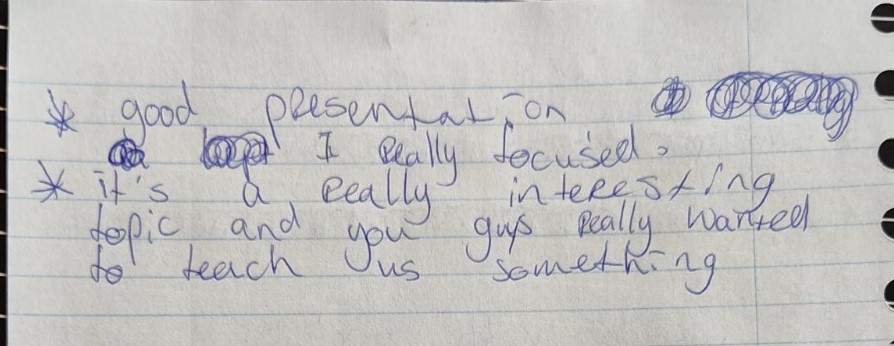 * good presentation
I really focused.
* it's a really interesting
topic and you guys really wanted
to teach us something